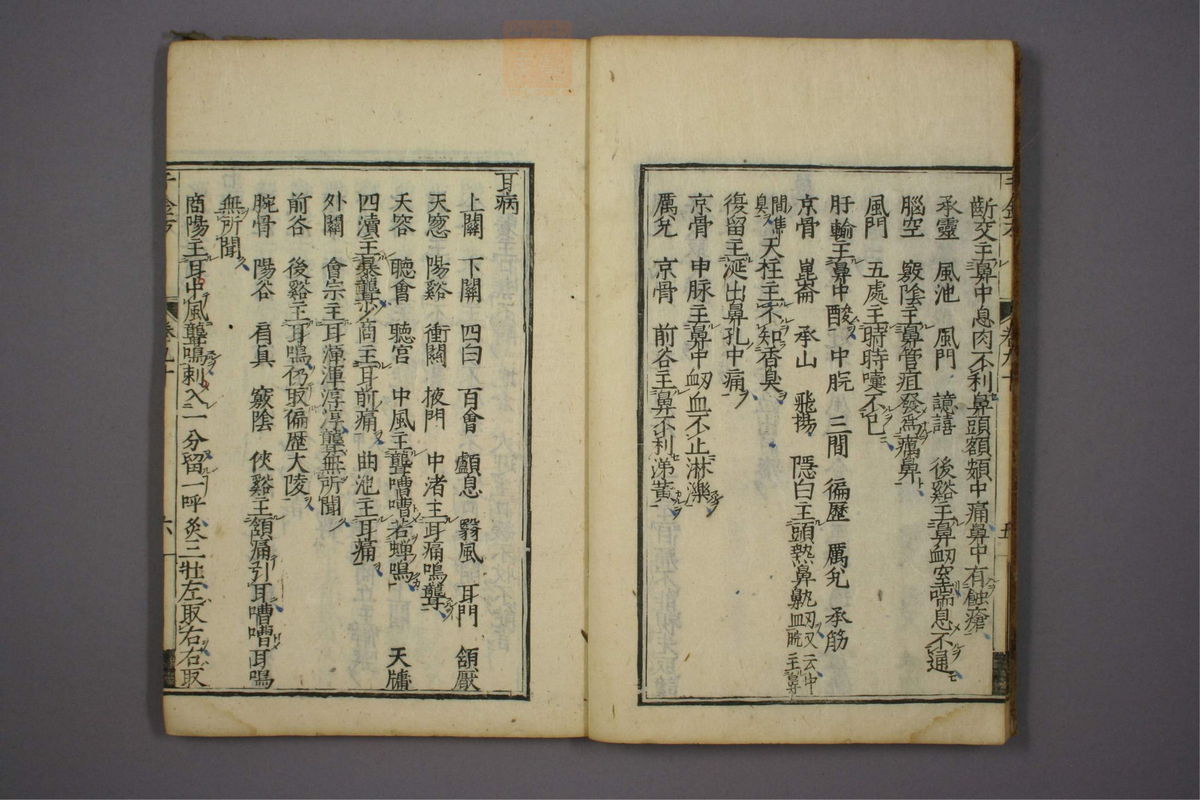 斷交主鼻中息肉不利鼻頭額頞中痛鼻中有蝕瘡
承靈　風池　風門　譩譆　後谿主鼻衄窒喘息不通
腦空　竅陰主鼻管疽發為癘鼻
風門　五處主時時嚏不已
肝輸主鼻中酸　中脘　三間　徧歷　厲兌　承筋
京骨　崑崙　承山　飛揚　隱白主頭熱鼻鼽衄又云中脘主鼻
間焦臭天柱主不知香臭
復留主涎出鼻孔中痛
京骨　申脉主鼻中衄血不止淋濼
厲兌　京骨　前谷主鼻不利涕黃
耳病
上關　下關　四白　百會　顱息　翳風　耳門　頷厭
天窓　陽谿　衝關　掖門　中渚主耳痛鳴聾
天容　聽會　聽宮　中風主聾嘈嘈若蟬鳴　天牖
四瀆主暴聾少商主耳前痛　曲池主耳痛
外關　會宗主耳渾渾淳淳聾無所聞
前谷　後谿主耳鳴仍取徧歷大陵
腕骨　陽谷　肩貞　竅陰　俠谿主頷痛引耳嘈嘈耳鳴
無所聞
商陽主耳中風聾鳴刺入一分留一呼灸三壯左取右右取
六